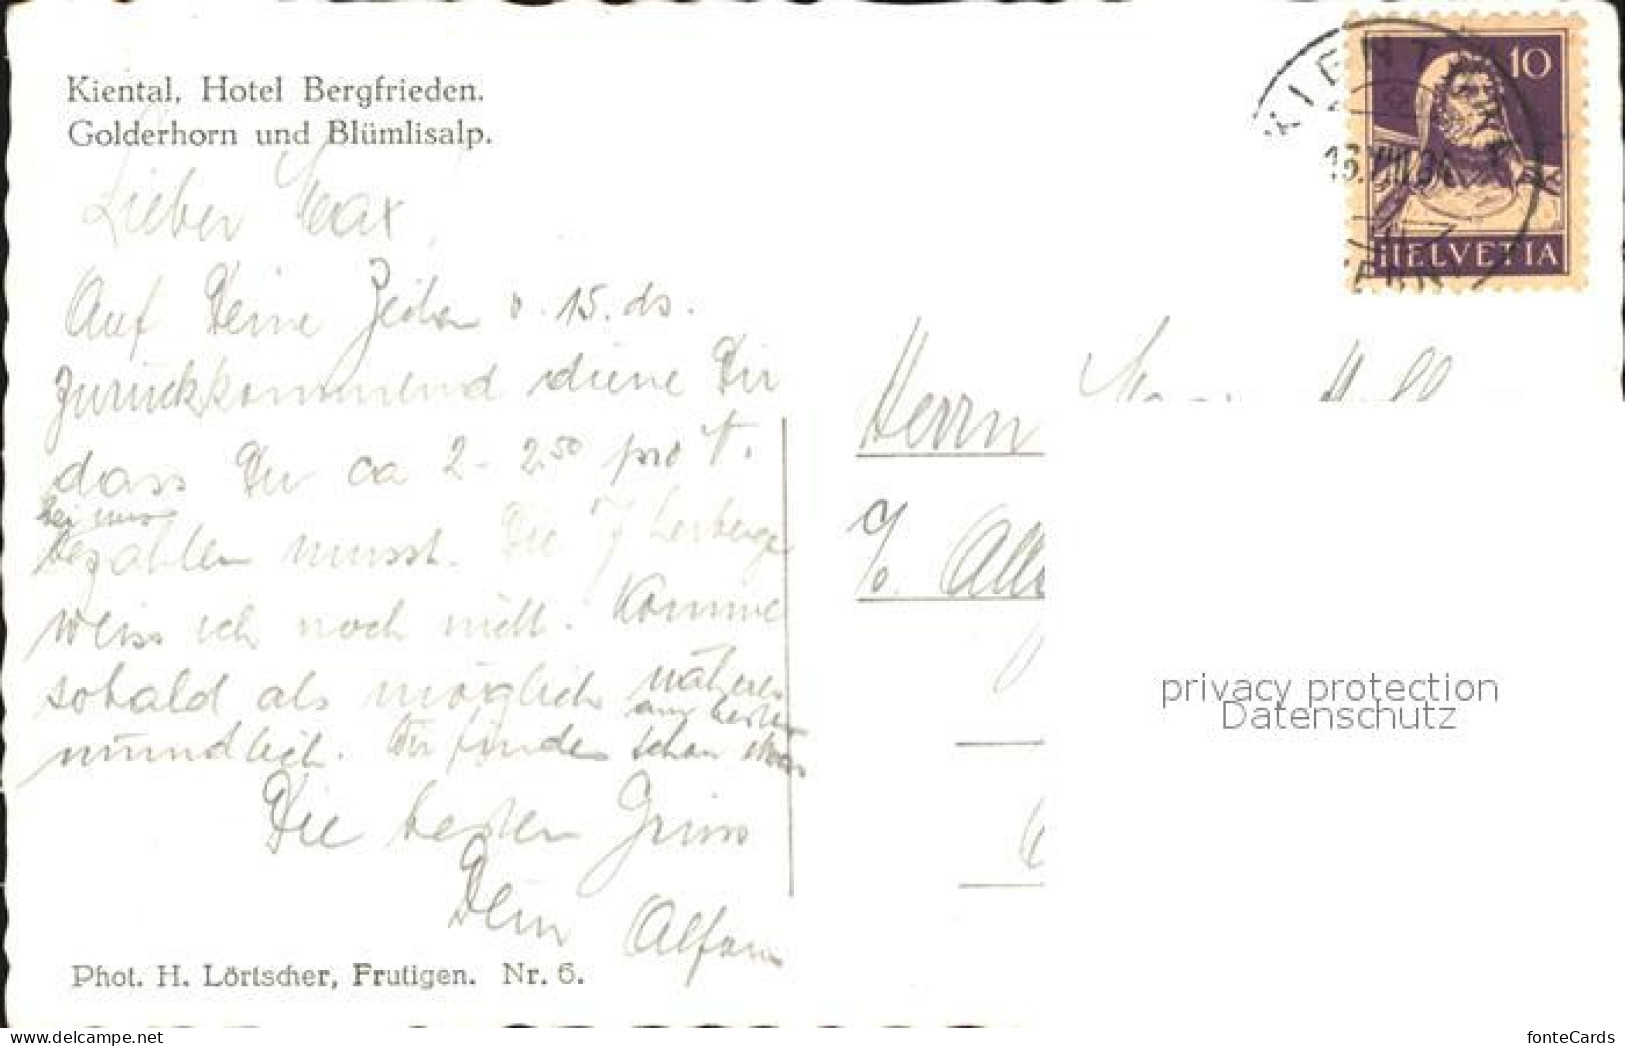 Kiental, Hotel Bergfrieden.
Golderhorn und Blümlisalp.
Lieber Max,
Auf Deine Zeilen v. 15. ds.
zurückkommend diene Dir
dass Du ca 2.- 2.50 pro T.
bei uns
bezahlen musst. Die J Herberge
weiss ich noch nicht. Komme
sobald als möglich näheres
am besten
mündlich. Wir finden schon etwas
Die besten Grüss
Dein Alfons
Phot. H. Lörtscher, Frutigen. Nr. 6.
KIENTAL
16.VIII.
10
HELVETIA
Herrn
c/o.
privacy protection
Datenschutz
fonteCards